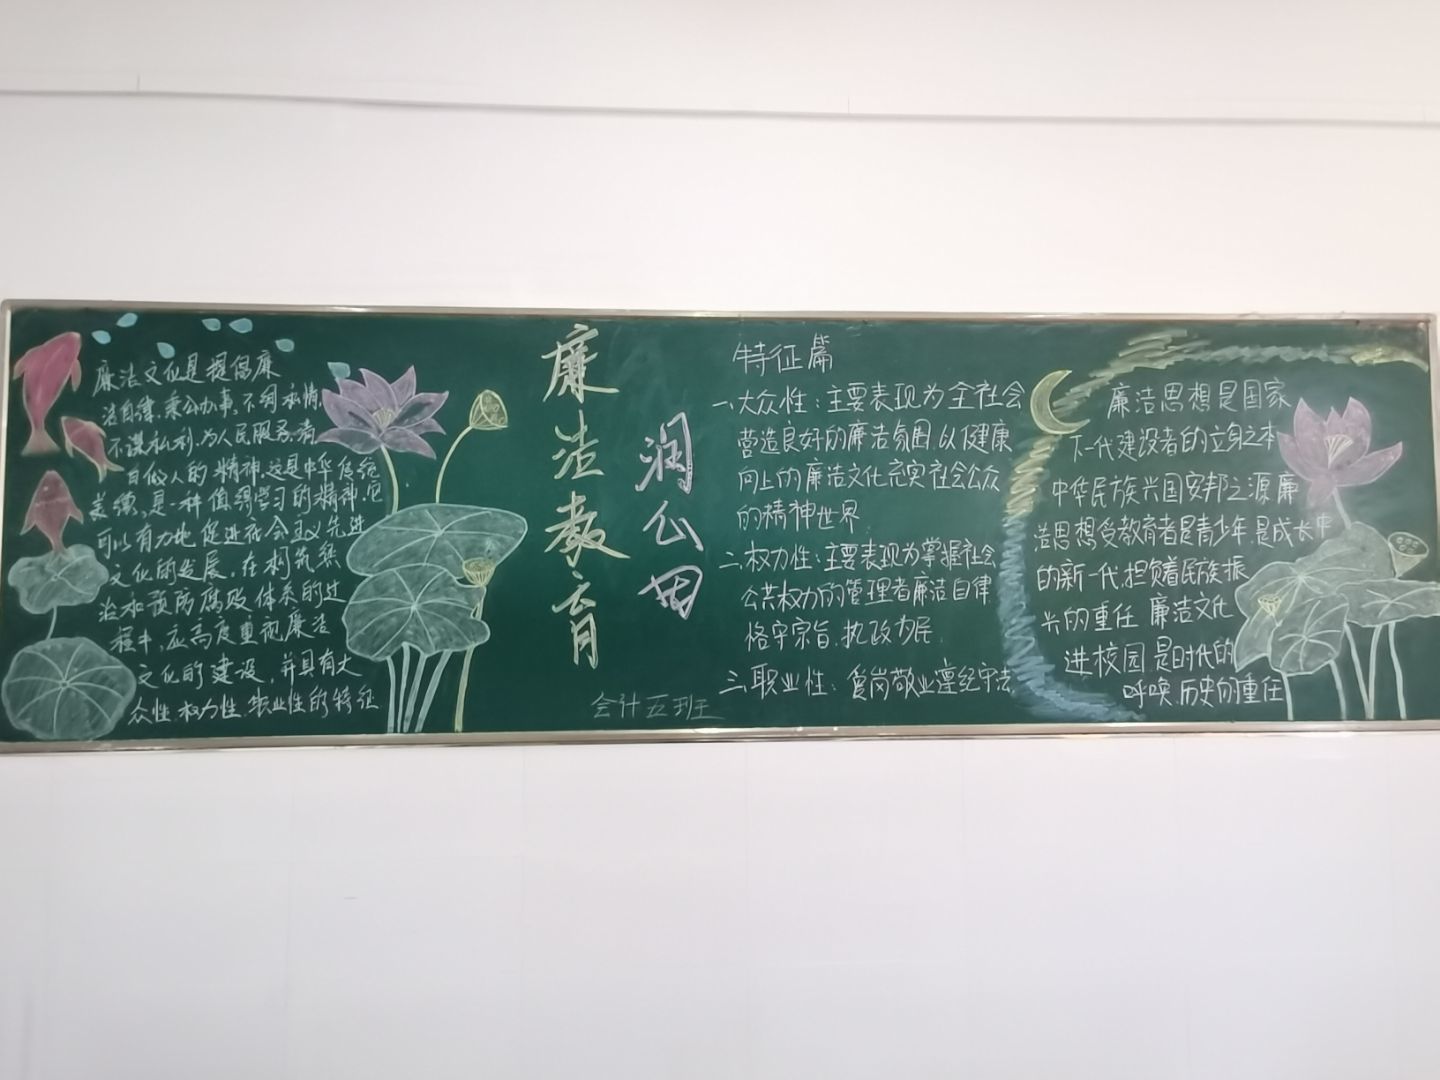 廉洁文化是提倡廉
洁自律、秉公办事、不徇私情,
不谋私利,为人民服务,清
白做人的精神.这是中华传统
美德,是一种值得学习的精神,它
可以有力地促进社会主义先进
文化的发展,在构筑惩
治和预防腐败体系的过
程中,应高度重视廉洁
文化的建设,并具有大
众性.权力性.职业性的特征
廉洁教育
润心田
会计五班
特征篇
一、大众性:主要表现为全社会
营造良好的廉洁氛围,以健康
向上的廉洁文化充实社会公众
的精神世界
二、权力性:主要表现为掌握社会
公共权力的管理者廉洁自律
恪守宗旨.执政为民.
三、职业性:爱岗敬业遵纪守法
廉洁思想是国家
下一代建设者的立身之本
中华民族兴国安邦之源廉
洁思想受教育者是青少年,是成长中
的新一代,担负着民族振
兴的重任 廉洁文化
进校园.是时代的
呼唤.历史的重任